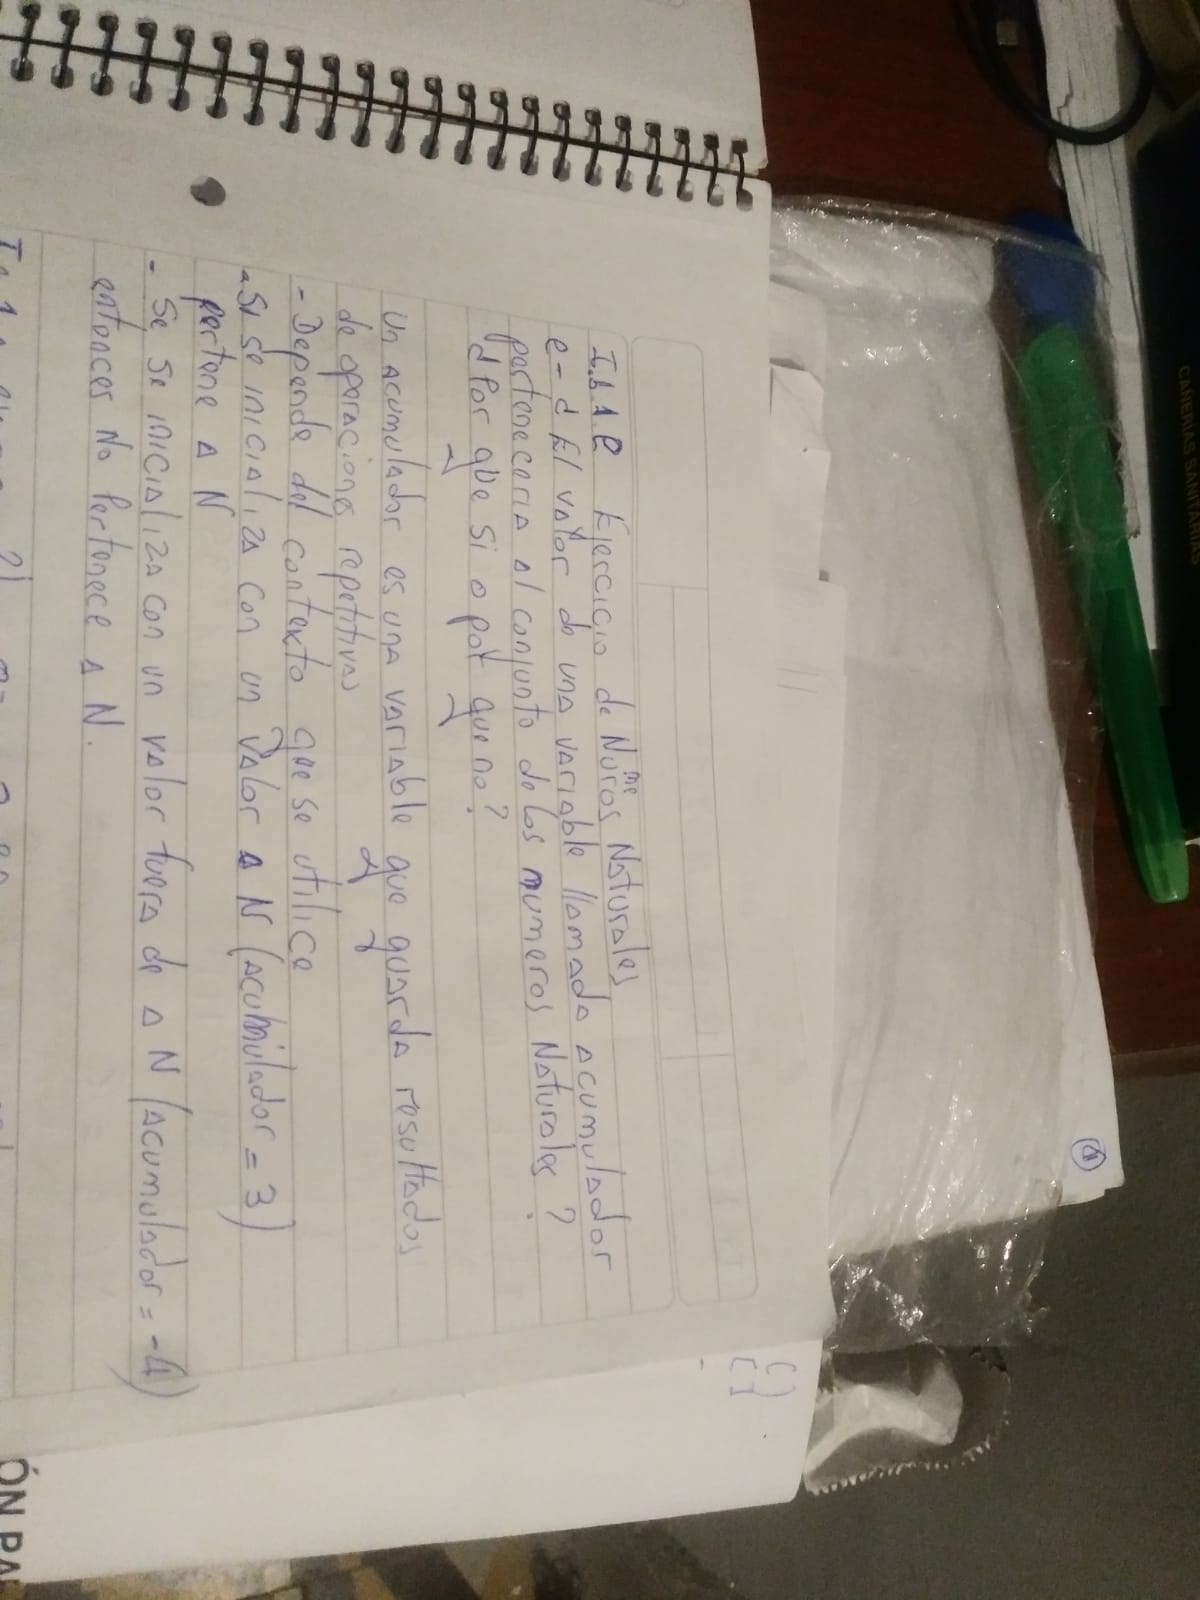 CAÑERIAS SANITARIAS
( )
[ ]
I.b.1.e Ejercicio de Numeros Naturales
e - ¿ El valor de una variable llamada acumulador
perteneceria al conjunto de los numeros Naturales ?
¿ Por que si o por que no ?
Un acumulador es una variable que guarda resultados
de operaciones repetitivas
- Depende del contexto que se utilice
- Si se inicializa con un valor a N (acumulador = 3)
pertene a N
- Se se inicializa con un valor fuera de a N (acumulador = -4)
entonces No Pertenece a N.
ÓN PA